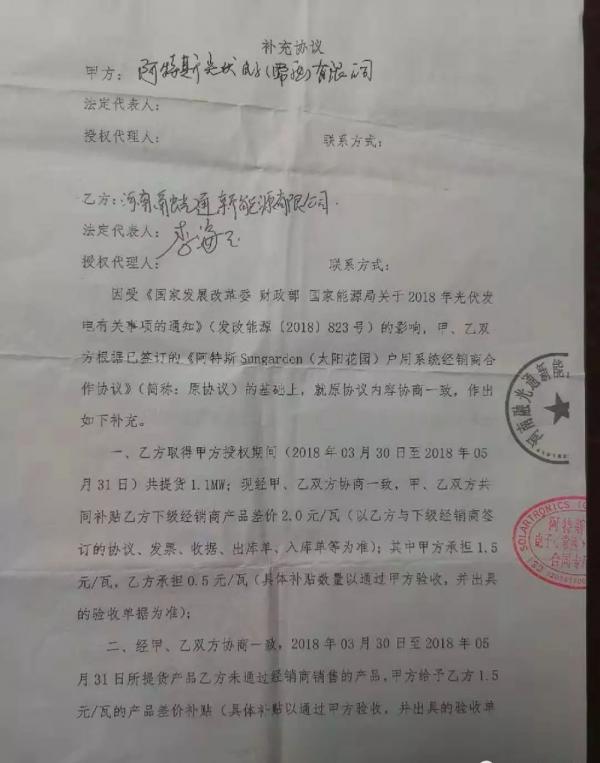 补充协议
甲方：阿特斯光伏电子（常熟）有限公司
法定代表人：
授权代理人： 联系方式：
乙方：河南融光通新能源有限公司
法定代表人：李海
授权代理人： 联系方式：
因受《国家发展改革委 财政部 国家能源局关于 2018 年光伏发
电有关事项的通知》（发改能源〔2018〕823 号）的影响，甲、乙双
方根据已签订的《阿特斯 Sungarden（太阳花园）户用系统经销商合
作协议》（简称：原协议）的基础上，就原协议内容协商一致，作出
如下补充。
一、乙方取得甲方授权期间（2018 年 03 月 30 日至 2018 年 05
月 31 日）共提货 1.1MW；现经甲、乙双方协商一致，甲、乙双方共
同补贴乙方下级经销商产品差价 2.0 元/瓦（以乙方与下级经销商签
订的协议、发票、收据、出库单、入库单等为准）；其中甲方承担 1.5
元/瓦，乙方承担 0.5 元/瓦（具体补贴数量以通过甲方验收，并出具
的验收单据为准）；
二、经甲、乙双方协商一致，2018 年 03 月 30 日至 2018 年 05
月 31 日所提货产品乙方未通过经销商销售的产品，甲方给予乙方 1.5
元/瓦的产品差价补贴（具体补贴以通过甲方验收，并出具的验收单
河南融光通新能
SOLARTRONICS
阿特斯
电子（常熟）
合同专